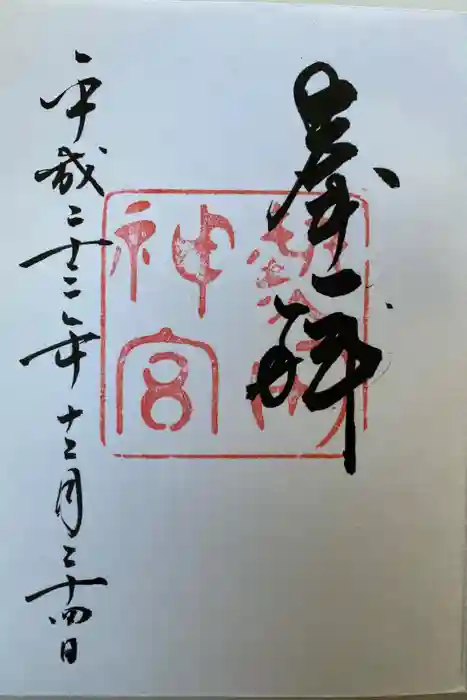 奉拝
熱田
神宮
平成二十三年十二月二十四日